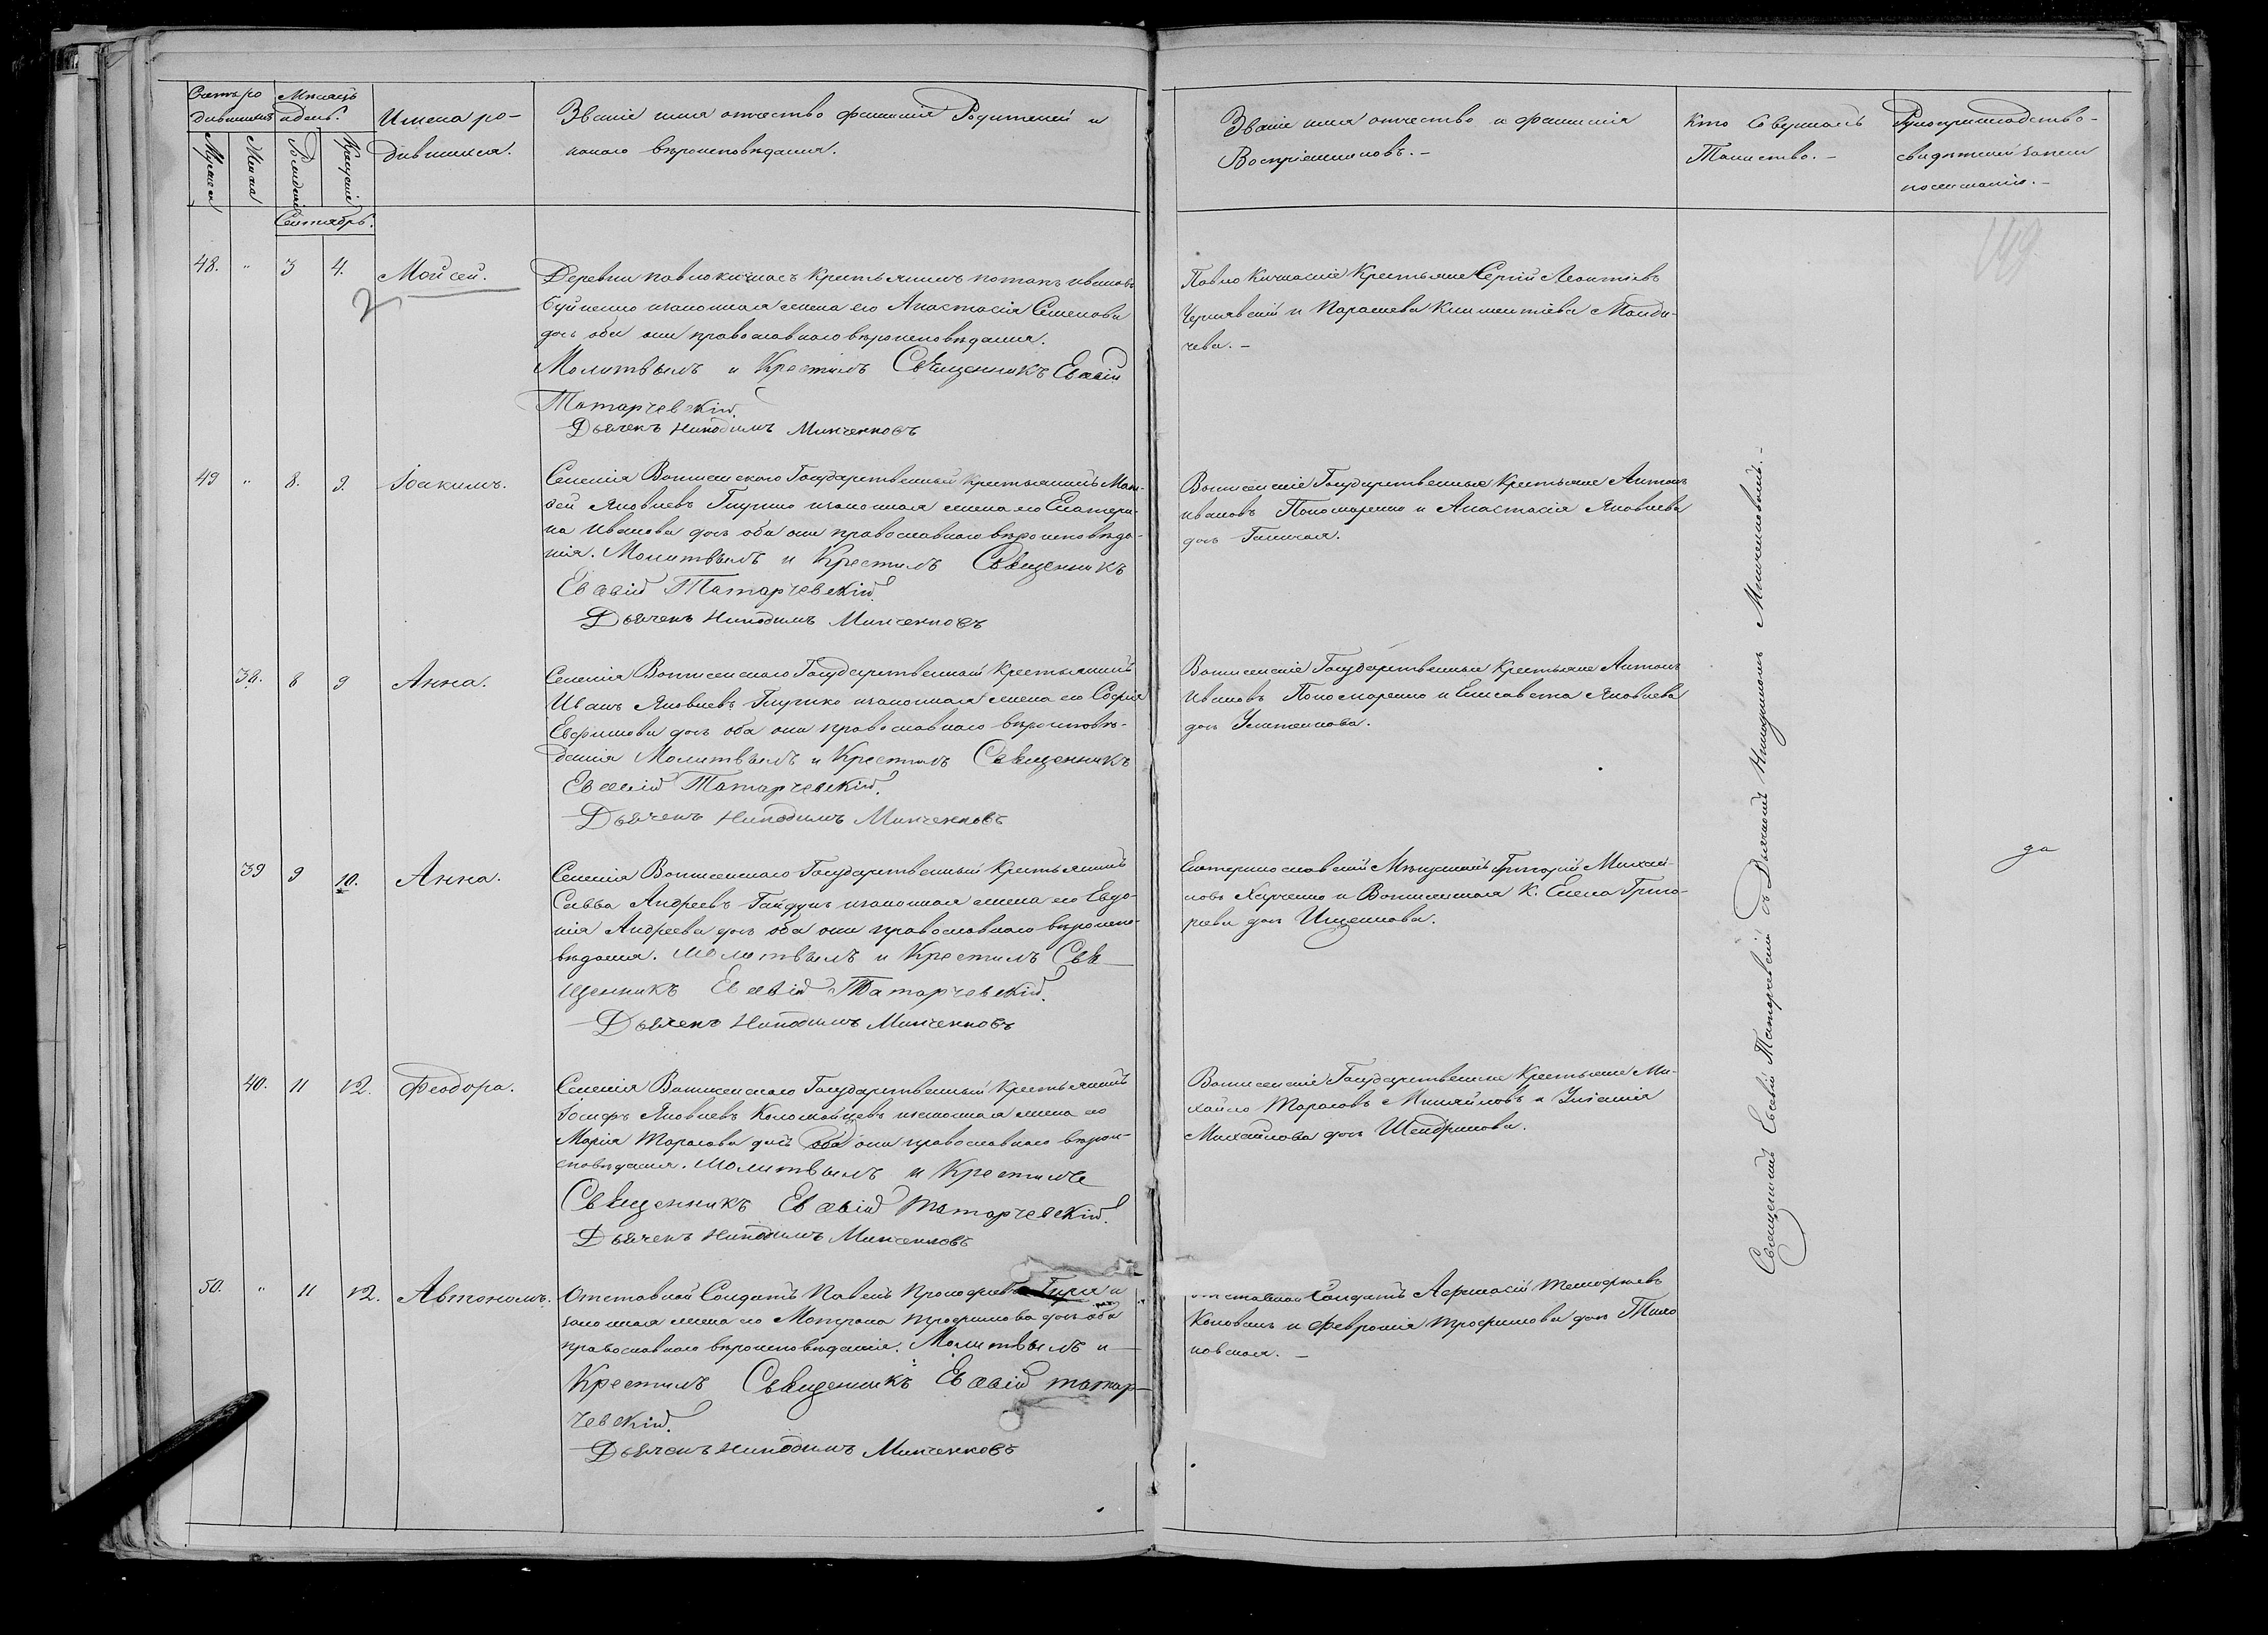 Счетъ ро
дившихся
Мѣсяцъ
и день.
Мужеска
Женска
Рожденія
Крещенія
Имена ро-
дившихся.
Званіе имя отчество фамилія Родителей и
какого вѣроисповѣданія.
Званіе имя отчество и фамилія
Воспріемниковъ. –
Кто Совершалъ
Таинство. –
Рукоприкладство
свидѣтелей записи
по желанію. –
149
Сентябрь.
48. " 3 4. Мойсей.
2
Деревни Павлокичкасъ Крестьянинъ Потапъ Ивановъ
Буйненко и законная жена его Анастасія Семенова
дочь оба они православнаго вѣроисповѣданія.
Молитвилъ и Крестилъ Священникъ Евсевій
Татарчевскій.
Дьячекъ Никодимъ Минченковъ
Павло Кичкаскіе Крестьяне Сергій Леонтіевъ
Чернявскій и Параскева Климентіева
чева. –
49 " 8. 9. Іоакимъ.
Селенія Вознесенскаго Государственный Крестьянинъ Мат-
вей Яковлевъ Глушко и законная жена его Екатери-
на Иванова дочь оба они православнаго вѣроисповѣда-
нія. Молитвилъ и Крестилъ Священникъ
Евсевій Татарчевскій.
Дьячекъ Никодимъ Минченковъ
Вознесенскіе Государственные Крестьяне Антонъ
Ивановъ Пономаренко и Анастасія Яковлева
дочь Галичая.
38. 8 9 Анна.
Селенія Вознесенскаго Государственный Крестьянинъ
Иванъ Яковлевъ Глушко и законная жена его Софія
Евфимова дочь оба они православнаго вѣроисповѣ-
данія Молитвилъ и Крестилъ Священникъ
Евсевій Татарчевскій.
Дьячекъ Никодимъ Минченковъ
Вознесенскіе Государственные Крестьяне Антонъ
Ивановъ Пономаренко и Елисавета Яковлева
дочь
39 9 10. Анна.
Селенія Вознесенскаго Государственный Крестьянинъ
Савва Андреевъ Гайдукъ и законная жена его Евдо-
кія Андреева дочь оба они православнаго вѣроиспо-
вѣданія. Молитвилъ и Крестилъ Свя-
щенникъ Евсевій Татарчевскій.
Дьячекъ Никодимъ Минченковъ
Екатеринославскій Мѣщанинъ Григорій Михай-
ловъ Харченко и Вознесенская К. Елена Григо-
рьева дочь Ищенкова.
да
40. 11 12. Феодора.
Селенія Вознесенскаго Государственный Крестьянинъ
Іосифъ Яковлевъ Коломойцевъ и законная жена его
Марія Тарасова дочь оба они православнаго вѣрои-
сповѣданія. Молитвилъ и Крестилъ
Священникъ Евсевій Татарчевскій.
Дьячекъ Никодимъ Минченковъ
Вознесенскіе Государственные Крестьяне Ми-
хайло Тарасовъ и Уліанія
Михайлова дочь Шендрикова.
50. " 11 12. Автономъ.
Отставной Солдатъ Павелъ Прокофіевъ Гиря и
законная жена его Матрона Трофимова дочь оба
православнаго вѣроисповѣданія. Молитвилъ и
Крестилъ Священникъ Евсевій Татар-
чевскій.
Дьячекъ Никодимъ Минченковъ
Отставной Солдатъ Афанасій Тимофѣевъ
Коновалъ и Февронія Трофимова дочь
новская. –
Священникъ Евсевій Татарчевскій съ Дьячкомъ Никодимомъ Минченковымъ. –